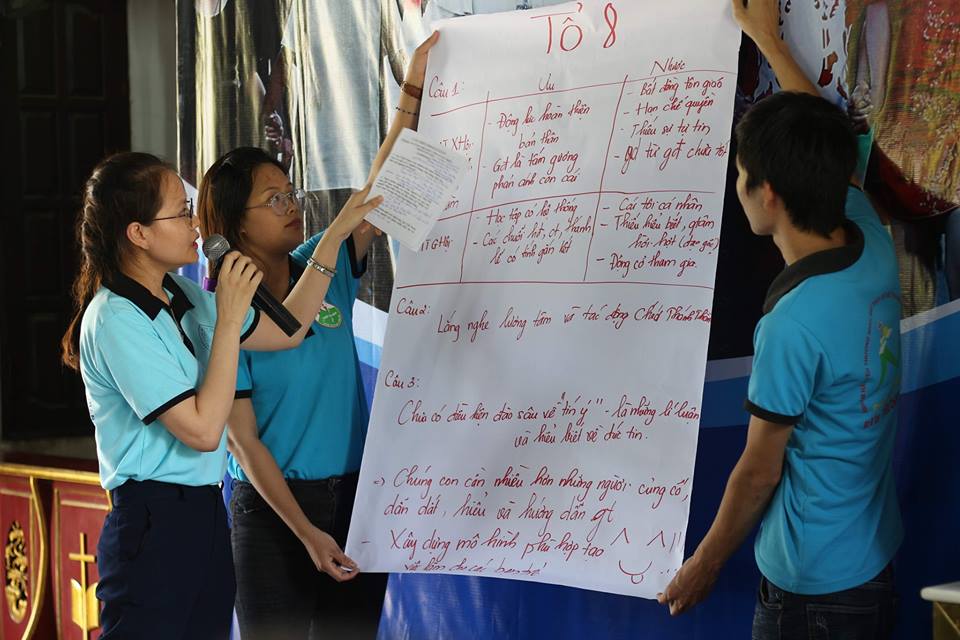 Tổ 8
Câu 1:
Ưu
Nhược
- Động lực hoàn thiện
bản thân
- Gđ là tấm gương
phản ánh con cái
- Bất đồng tôn giáo
- Hạn chế quyền
- Thiếu sự tự tin
- Gđ chưa tốt
- Học tập có hệ thống
- Các chuỗi
lễ có tính gắn kết
- Cái tôi cá nhân
- Thiếu hiểu biết, giảm
- Động cơ tham gia.
Câu 2:
Lắng nghe lương tâm và tác động Chúa Thánh Thần
Câu 3:
Chưa có điều kiện đào sâu về "tín lý" - là những lí luận
và hiểu biết về đức tin.
=> Chúng con cần nhiều hơn những người củng cố,
dẫn dắt, hiểu và hướng dẫn gt
- Xây dựng mô hình phù hợp tạo